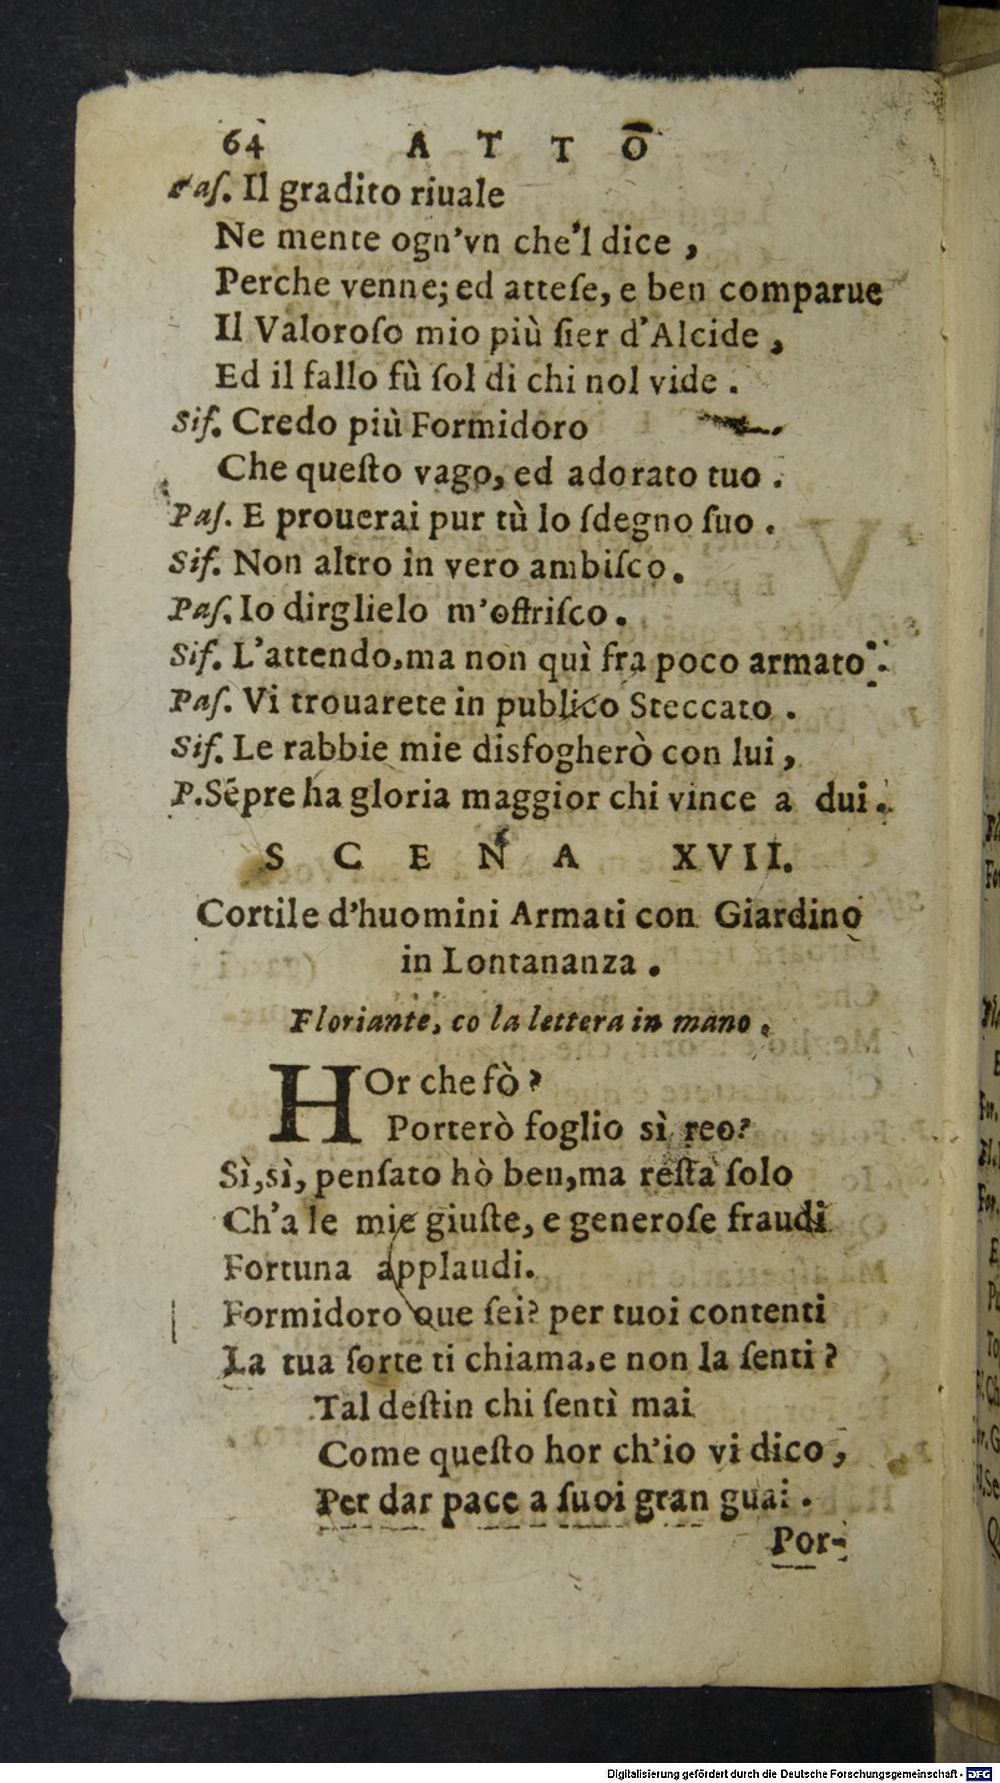 64 ATTO
Paſ. Il gradito riuale
Ne mente ogn'vn che'l dice ,
Perche venne; ed atteſe, e ben comparue
Il Valoroſo mio più fier d'Alcide ,
Ed il fallo fù ſol di chi nol vide .
Sif. Credo più Formidoro
Che queſto vago, ed adorato tuo .
Paſ. E prouerai pur tù lo ſdegno ſuo .
Sif. Non altro in vero ambiſco.
Paſ. Io dirglielo m'offriſco.
Sif. L'attendo, ma non quì fra poco armato.
Paſ. Vi trouarete in publico Steccato .
Sif. Le rabbie mie disfogherò con lui ,
P. Sẽpre ha gloria maggior chi vince a dui.
SCENA XVII.
Cortile d'huomini Armati con Giardino
in Lontananza .
Floriante, co la lettera in mano .
HOr che fò ?
Porterò foglio sì reo?
Sì, sì, penſato hò ben, ma reſta ſolo
Ch'a le mie giuſte, e generoſe fraudi
Fortuna applaudi.
Formidoro oue ſei? per tuoi contenti
La tua ſorte ti chiama, e non la ſenti ?
Tal deſtin chi ſentì mai
Come queſto hor ch'io vi dico ,
Per dar pace a ſuoi gran guai .
Por-
Digitalisierung gefördert durch die Deutsche Forschungsgemeinschaft - DFG